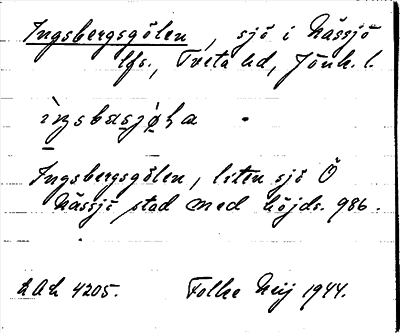 Ingsbergsgölen, sjö i Nässjö
lfs., Tveta hd, Jönk. l.
Ingsbergsgölen, liten sjö Ö
Nässjö stad med höjds. 986.
4205. 1944.